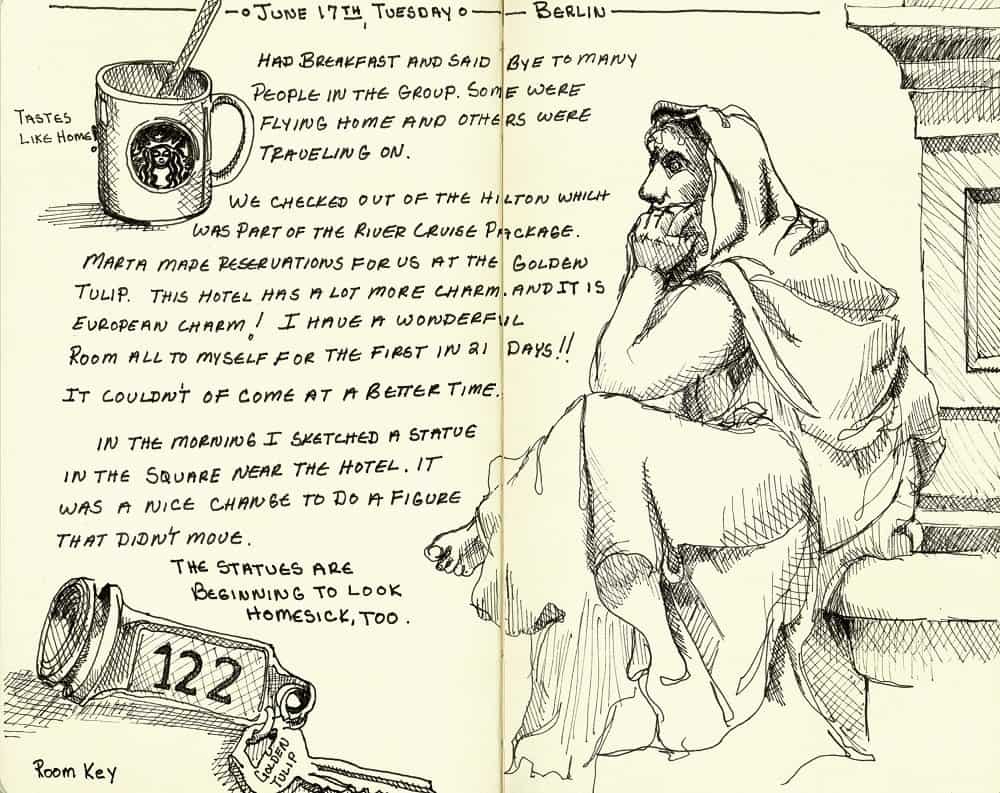 June 17th, Tuesday Berlin
Had Breakfast and said bye to many
people in the group. Some were
flying home and others were
traveling on.
Tastes
like home!
We checked out of the Hilton which
was part of the River Cruise Package.
Marta made reservations for us at the Golden
Tulip. This hotel has a lot more charm. And it is
European charm! I have a wonderful
room all to myself for the first in 21 days!!
It couldn't of come at a better time.
In the morning I sketched a statue
in the square near the hotel. It
was a nice change to do a figure
that didn't move.
The statues are
beginning to look
homesick, too.
122
Golden
Tulip
Room Key